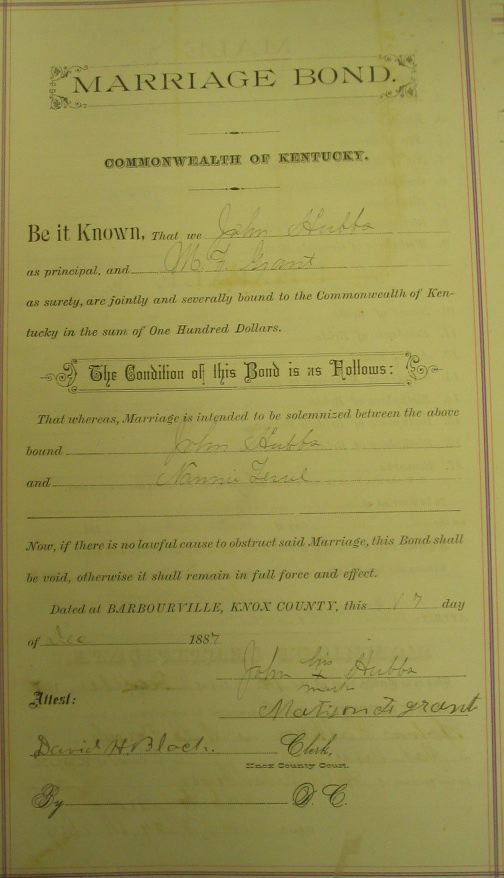 MARRIAGE BOND.
COMMONWEALTH OF KENTUCKY.
Be it Known, That we John Hubbs
as principal, and M. F. Grant
as surety, are jointly and severally bound to the Commonwealth of Ken-
tucky in the sum of One Hundred Dollars.
The Condition of this Bond is as Follows:
That whereas, Marriage is intended to be solemnized between the above
bound John Hubbs
and Nannie
Now, if there is no lawful cause to obstruct said Marriage, this Bond shall
be void, otherwise it shall remain in full force and effect.
Dated at BARBOURVILLE, KNOX COUNTY, this 17 day
of Dec 1887
John his Hubbs
x
mark
Attest:
Matison F grant
David H. Black. Clerk,
Knox County Court.
By D. C.